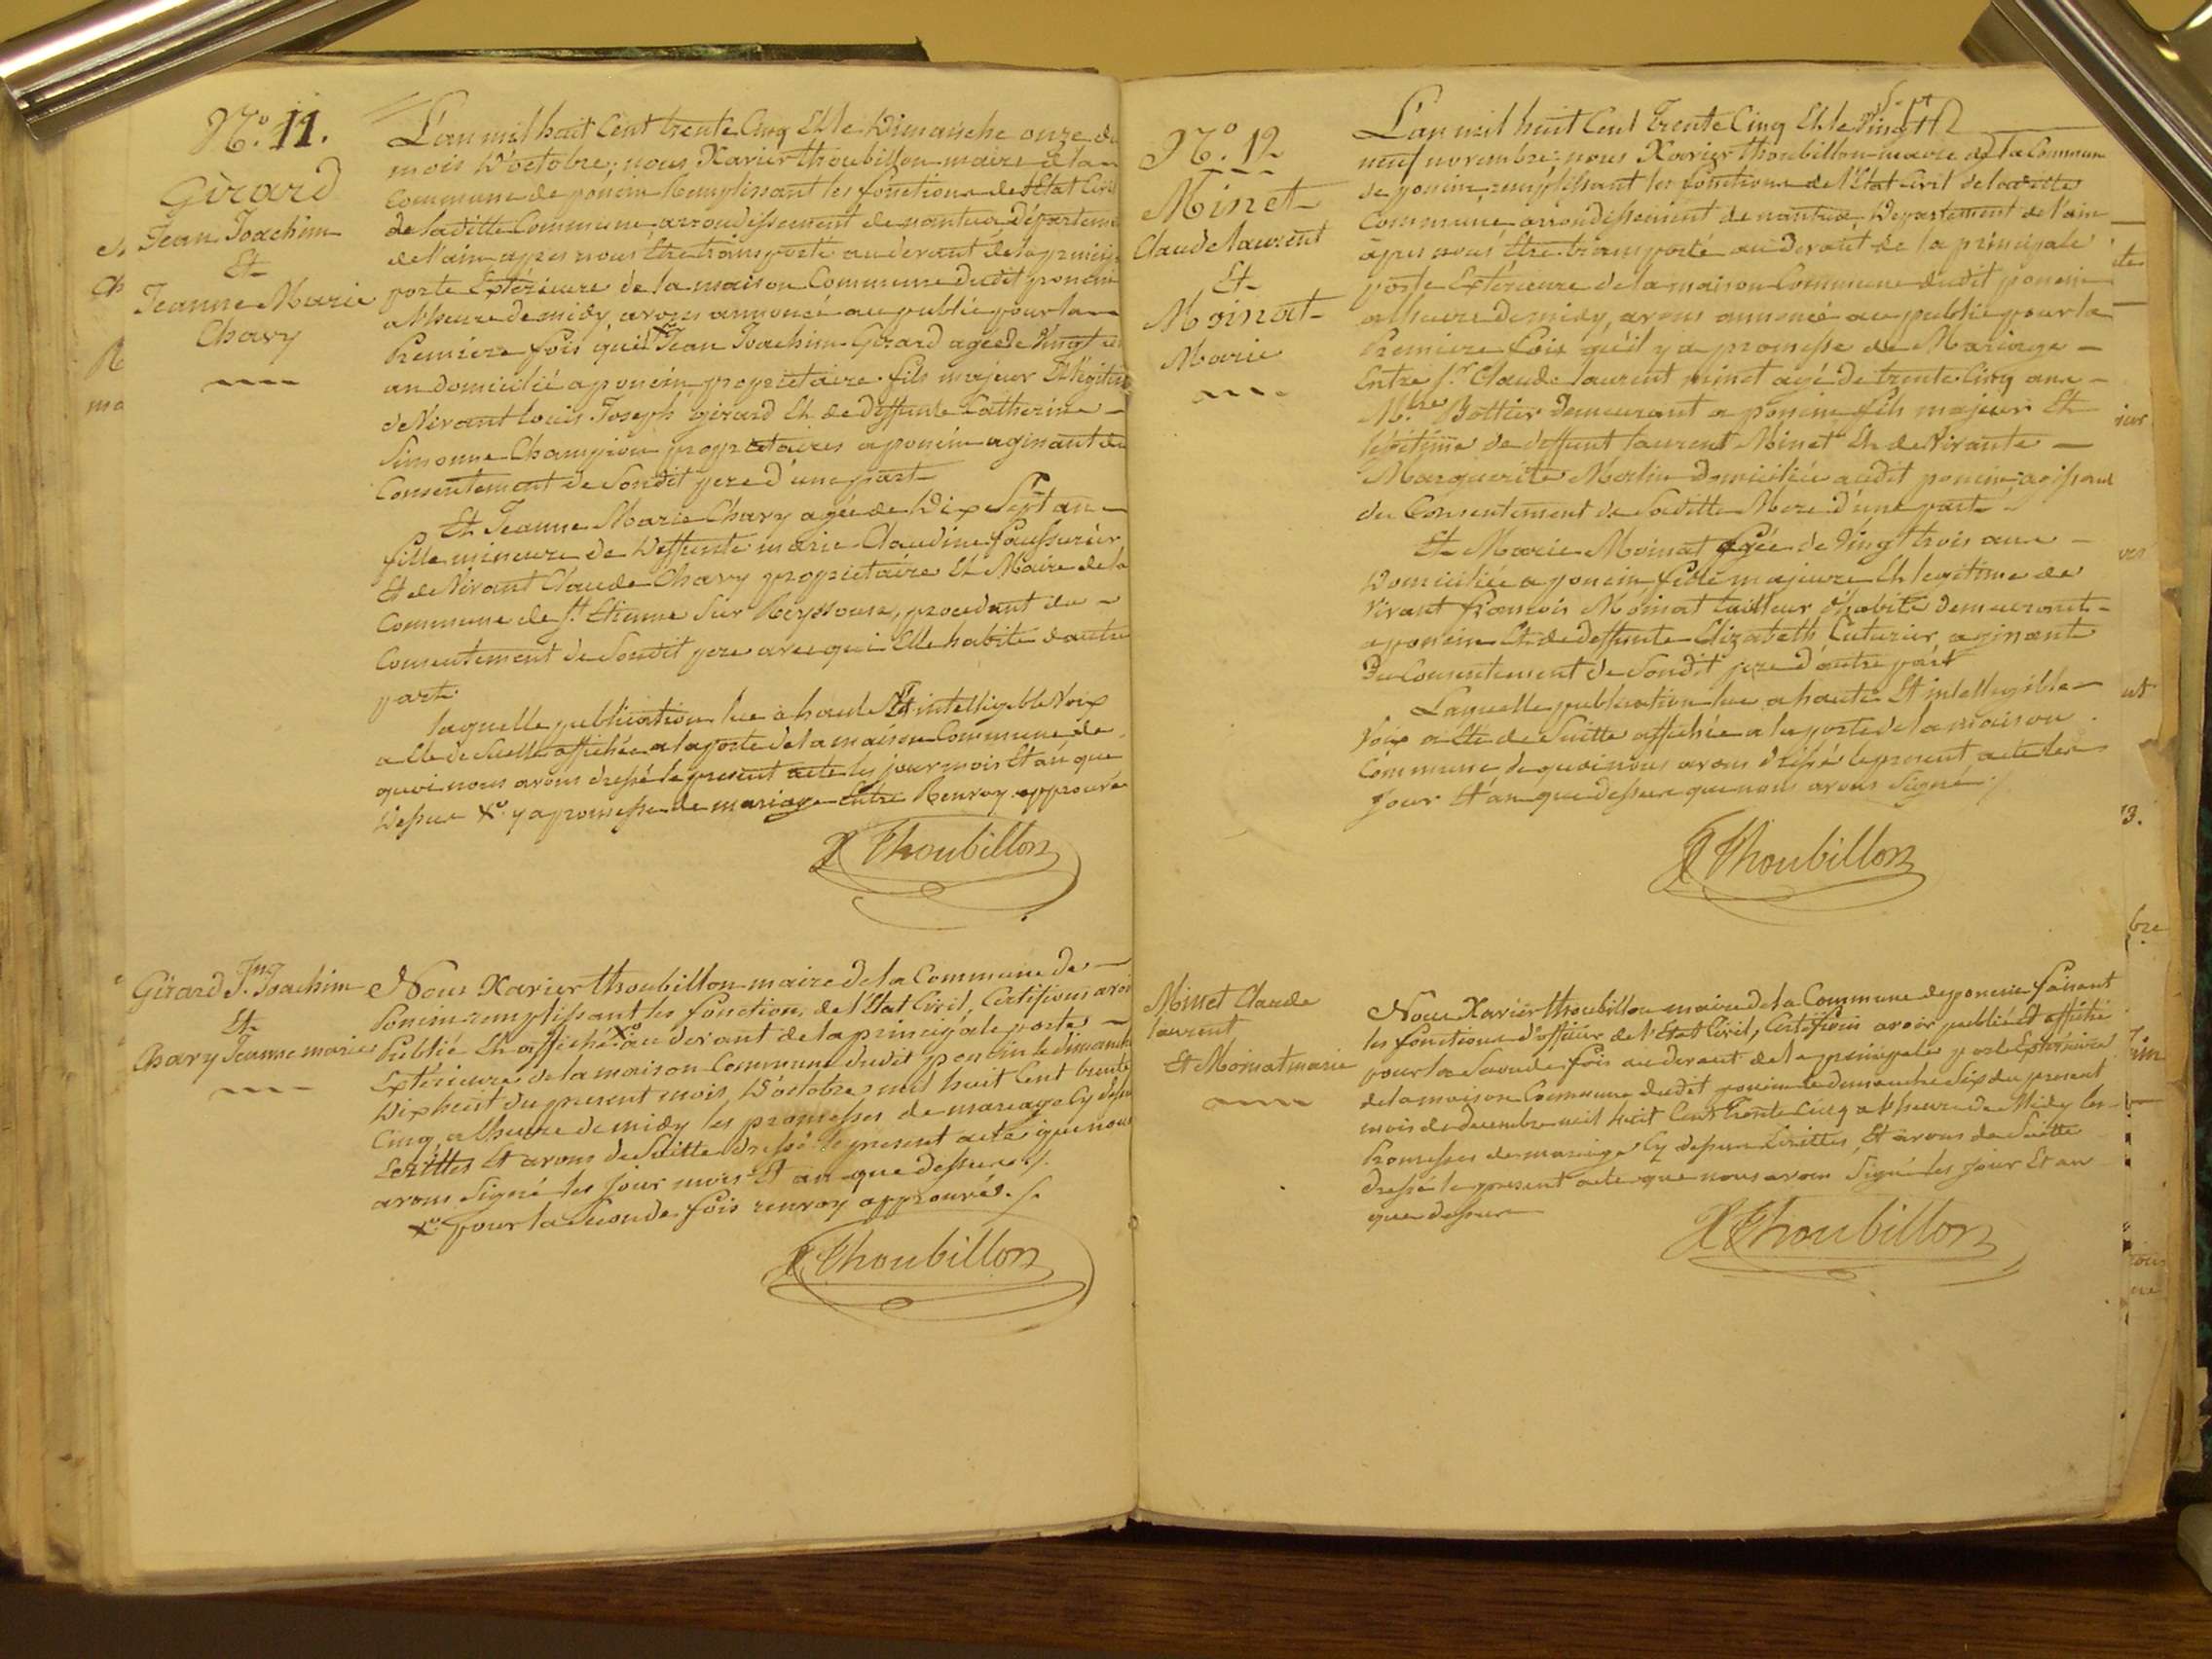 N.o 11.
Girard
Jean Joachim
Et
Jeanne Marie
Chavy
L'an mil huit Cent trente Cinq Et le Dimanche onze du
mois D'octobre, nous Xavier thoubillon maire de la
Commune de poncin Remplissant les fonctions de l'Etat Civil
de laditte Commune arrondissement de nantua Départem
de l'ain apres nous être transporté au devant de la princip
porte Extérieure de la maison Commune dudit poncin
a l'heure de midy, avons annoncé au public pour la
Premiere fois qu'il Xo Jean Joachim Girard agé de Vingt un
an domicilié a poncin propriétaire fils majeur Et légitime
de Vivant louis Joseph girard Et de deffunte Catherine
Simonne Champion propriétaires a poncin agissant du
Consentement de Son dit pere d'une part
Et Jeanne Marie Chavy agée de Dix Sept an
fille mineure de Deffunte marie Claudine
Et de Vivant Claude Chavy propriétaire Et Maire de la
Commune de St Etienne Sur Reyssouze, procedant du
Consentement de Son dit pere avec qui Elle habite d'autre
part.
laquelle publication lue a haute Et intelligible Voix
a Eté de Suitte affichée a la porte de la maison Commune de
quoi nous avons dressé le present acte les jour mois Et an que
Dessus Xo y a promesse de mariage Entre Renvoy approuvé
X Thoubillon
Girard Jn Joachim
Et
Chavy Jeanne marie
Nous Xavier thoubillon maire de la Commune de
Poncin remplissant les fonction de l'Etat Civil, Certifions avoir
Publié Et affiché Xo au devant de la principale porte
Extérieure de la maison Commune dudit poncin le dimanche
Dix huit du present mois D'octobre mil huit Cent trente
Cinq, a l'heure de midy les promesses de mariage Cy dessus
Ecrittes Et avons de Suitte dressé le present acte que nous
avons Signé les Jour mois Et an que dessus ./.
Xo pour la Seconde fois renvoy approuvé ./.
X Thoubillon
N.o 12
Minet
Claude laurent
Et
Moinat
Marie
L'an mil huit Cent Trente Cinq Et le Vingt
neuf novembre nous Xavier thoubillon maire de la Commune
de poncin remplissant les fonctions de l'Etat Civil de laditte
Commune arrondissement de nantua Departement de l'ain
apres nous être transporté au devant de la principale
porte Extérieure de la maison Commune dudit poncin
a l'heure de midy, avons annoncé au public pour la
Premiere fois qu'il y a promesse de Mariage
Entre Sr Claude laurent minet agé de trente Cinq ans
Mtre Bottier Demeurant a poncin fils majeur Et
légitime de deffunt laurent Minet Et de Vivante
Marguerite Merlin domiciliée audit poncin agissant
du Consentement de Saditte Mere d'une part
Et Marie Moinat agée de Vingt trois ans
Domiciliée a poncin fille majeure Et legitime de
Vivant françois Moinat tailleur d'habits demeurant
a poncin Et de deffunte Elizabeth Cuturier agissant
Du Consentement de Son dit pere d'autre part
Laquelle publication lue a haute Et intelligible
Voix a Eté de Suitte affichée a la porte de la maison
Commune de quoi nous avons dressé le present acte les
Jour Et an que dessus que nous avons Signé ./.
X Thoubillon
Minet Claude
laurent
Et Moinat marie
Nous Xavier thoubillon maire de la Commune de poncin faisant
les fonctions d'officier de l'Etat Civil, Certifions avoir publié Et affiché
pour la Seconde fois au devant de la principale porte Extérieure
de la maison Commune dudit poncin le dimanche Six du present
mois de decembre mil huit Cent Trente Cinq a l'heure de Midy les
Promesses de mariage Cy dessus Ecrittes, Et avons de Suitte
dressé le present acte que nous avons Signé les Jour Et an
que dessus
X Thoubillon